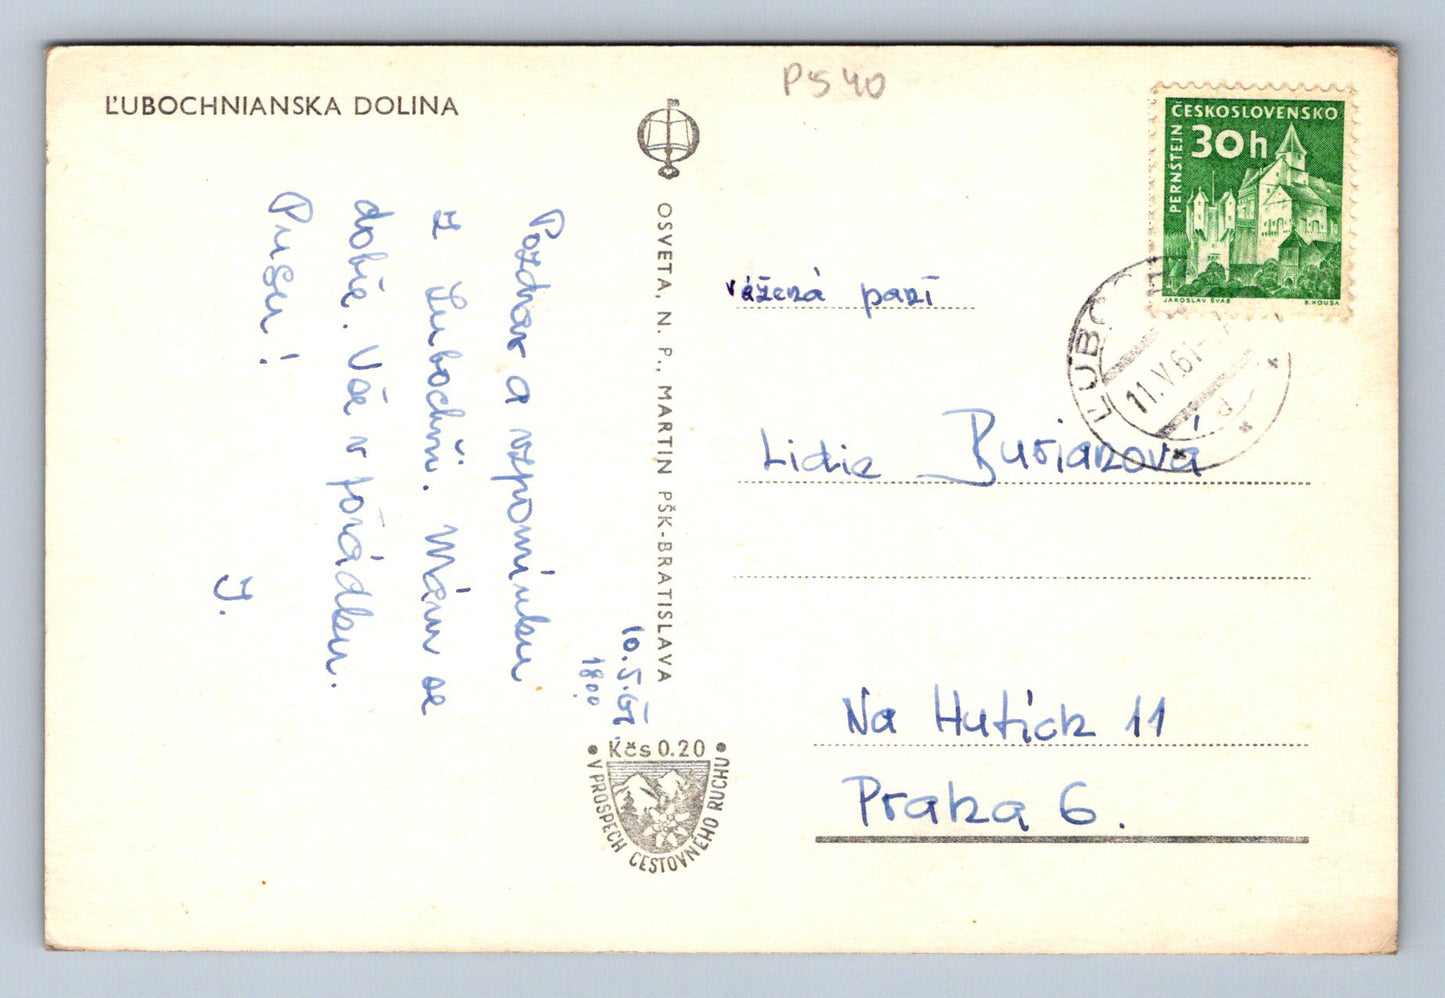 ĽUBOCHNIANSKA DOLINA
PS 40
ČESKOSLOVENSKO
30h
PERNŠTEJN
JAROSLAV ŠVÁB
B. HOUSA
ĽUBO
11.V.61-
d
OSVETA, N. P., MARTIN PŠK-BRATISLAVA
Pozdrav a vzpomínku
z Lubochni. Mám se
dobře. Vše v pořádku.
Pusu!
J.
10.5.61
1800
vážená paní
Lidie Burianová
Na Hutích 11
Praha 6.
• Kčs 0.20 •
V PROSPECH CESTOVNÉHO RUCHU